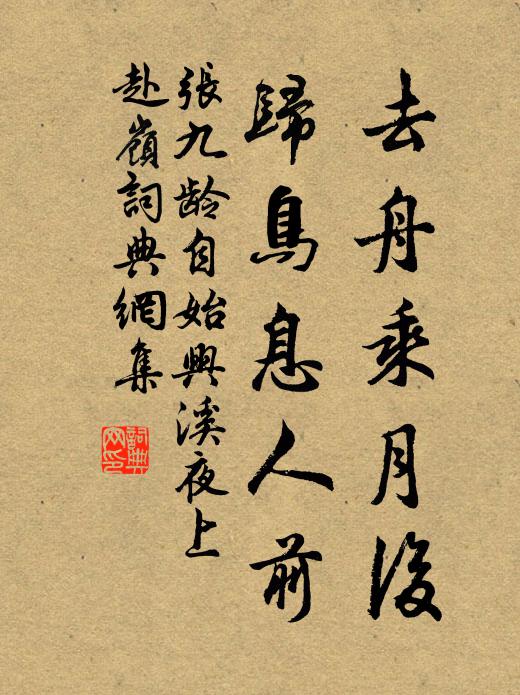 去舟乘月後
歸鳥息人前
張九龄自始興溪夜上
赴嶺詞典網集
詞典網印